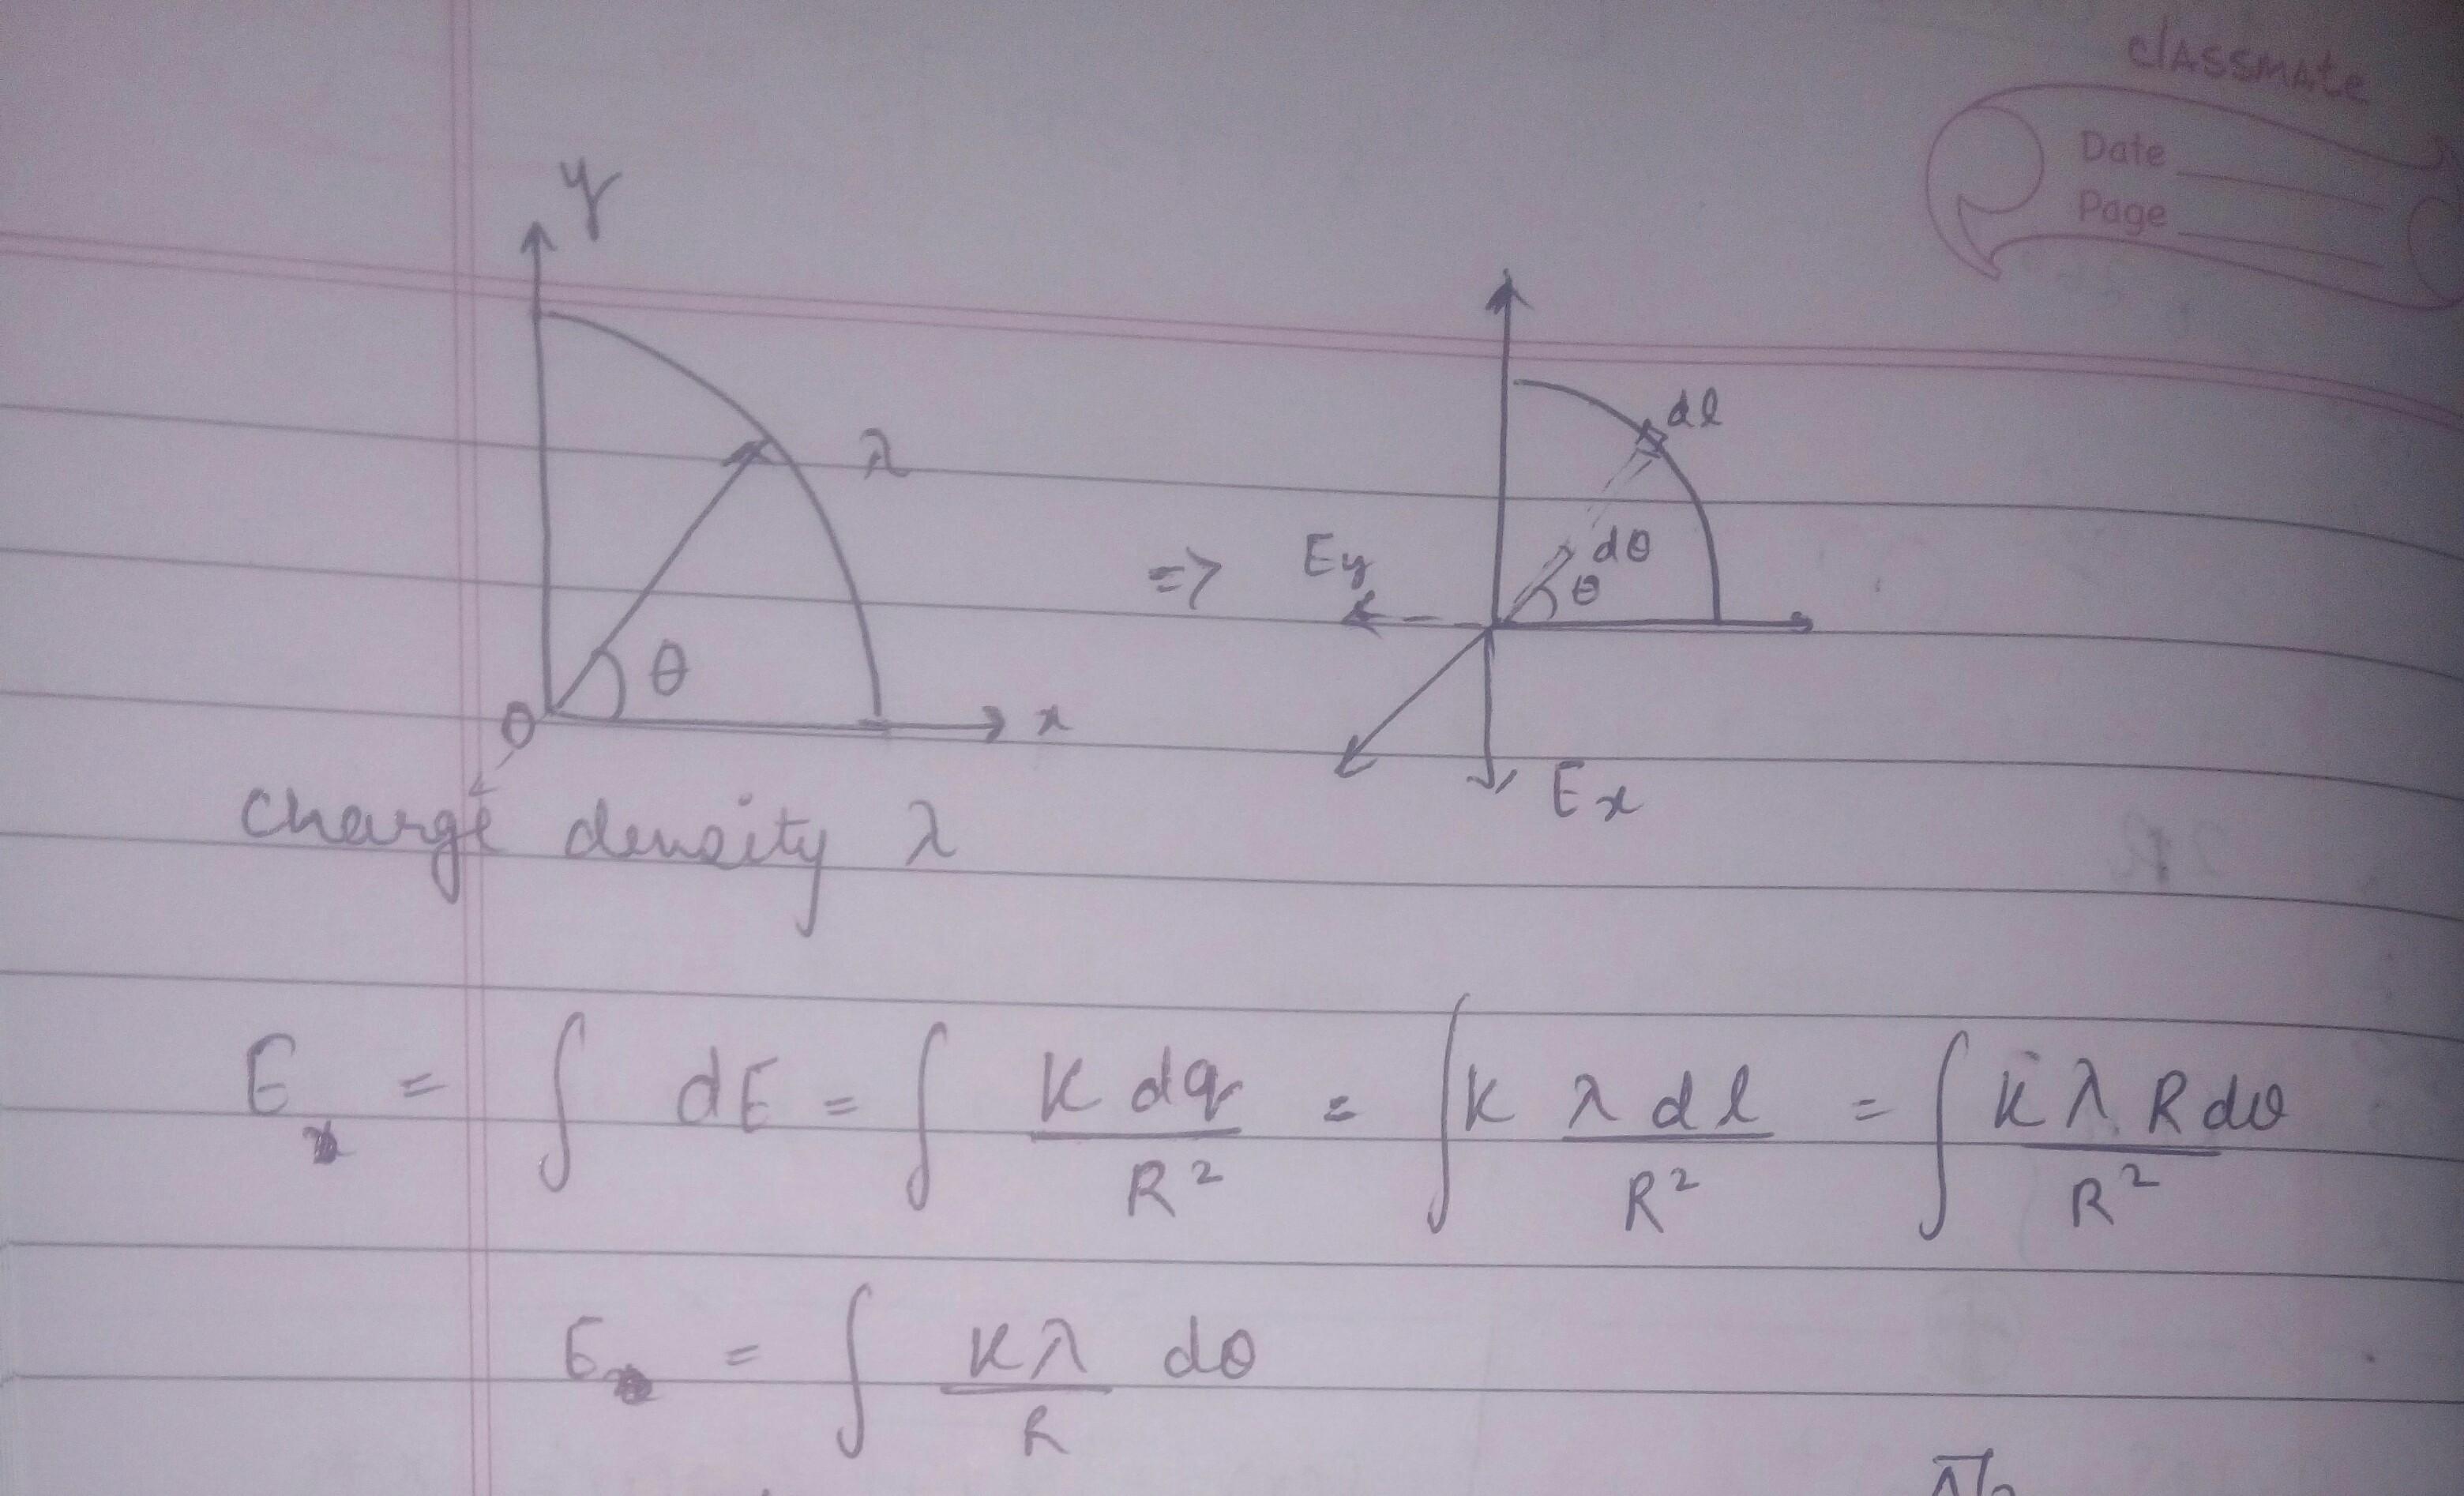 classmate
Date
Page
y
λ
θ
O
x
dl
=> Ey
dθ
θ
Ex
Charge density λ
E = ∫ dE = ∫ K dq / R² = ∫ K λ dl / R² = ∫ K λ R dθ / R²
E = ∫ Kλ / R dθ